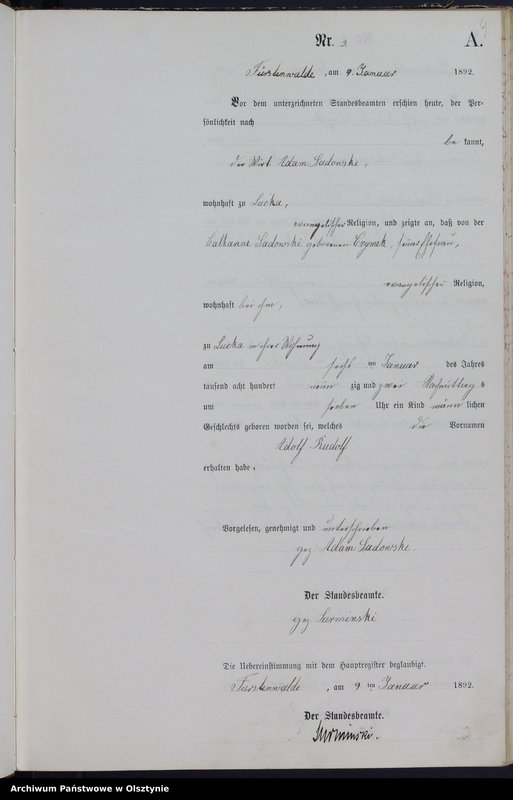 4
Nr. 3.
A.
Fürstenwalde, am 9. Januar 1892.
Vor dem unterzeichneten Standesbeamten erschien heute, der Per-
sönlichkeit nach
be kannt,
der Wirt Adam Sadowski,
wohnhaft zu Lucka,
evangelischer Religion, und zeigte an, daß von der
Catharine Sadowski geborenen Czymek, seiner Ehefrau,
evangelischer Religion,
wohnhaft bei ihm,
zu Lucka in ihrer Wohnung
am sechs ten Januar des Jahres
tausend acht hundert neun zig und zwei Nachmittag s
um sieben Uhr ein Kind männ lichen
Geschlechts geboren worden sei, welches die Vornamen
Adolf Rudolf
erhalten habe.
Vorgelesen, genehmigt und unterschrieben
gez Adam Sadowski.
Der Standesbeamte.
gez Surminski
Die Uebereinstimmung mit dem Hauptregister beglaubigt.
Fürstenwalde, am 9 ten Januar 1892.
Der Standesbeamte.
Surminski.
Archiwum Państwowe w Olsztynie